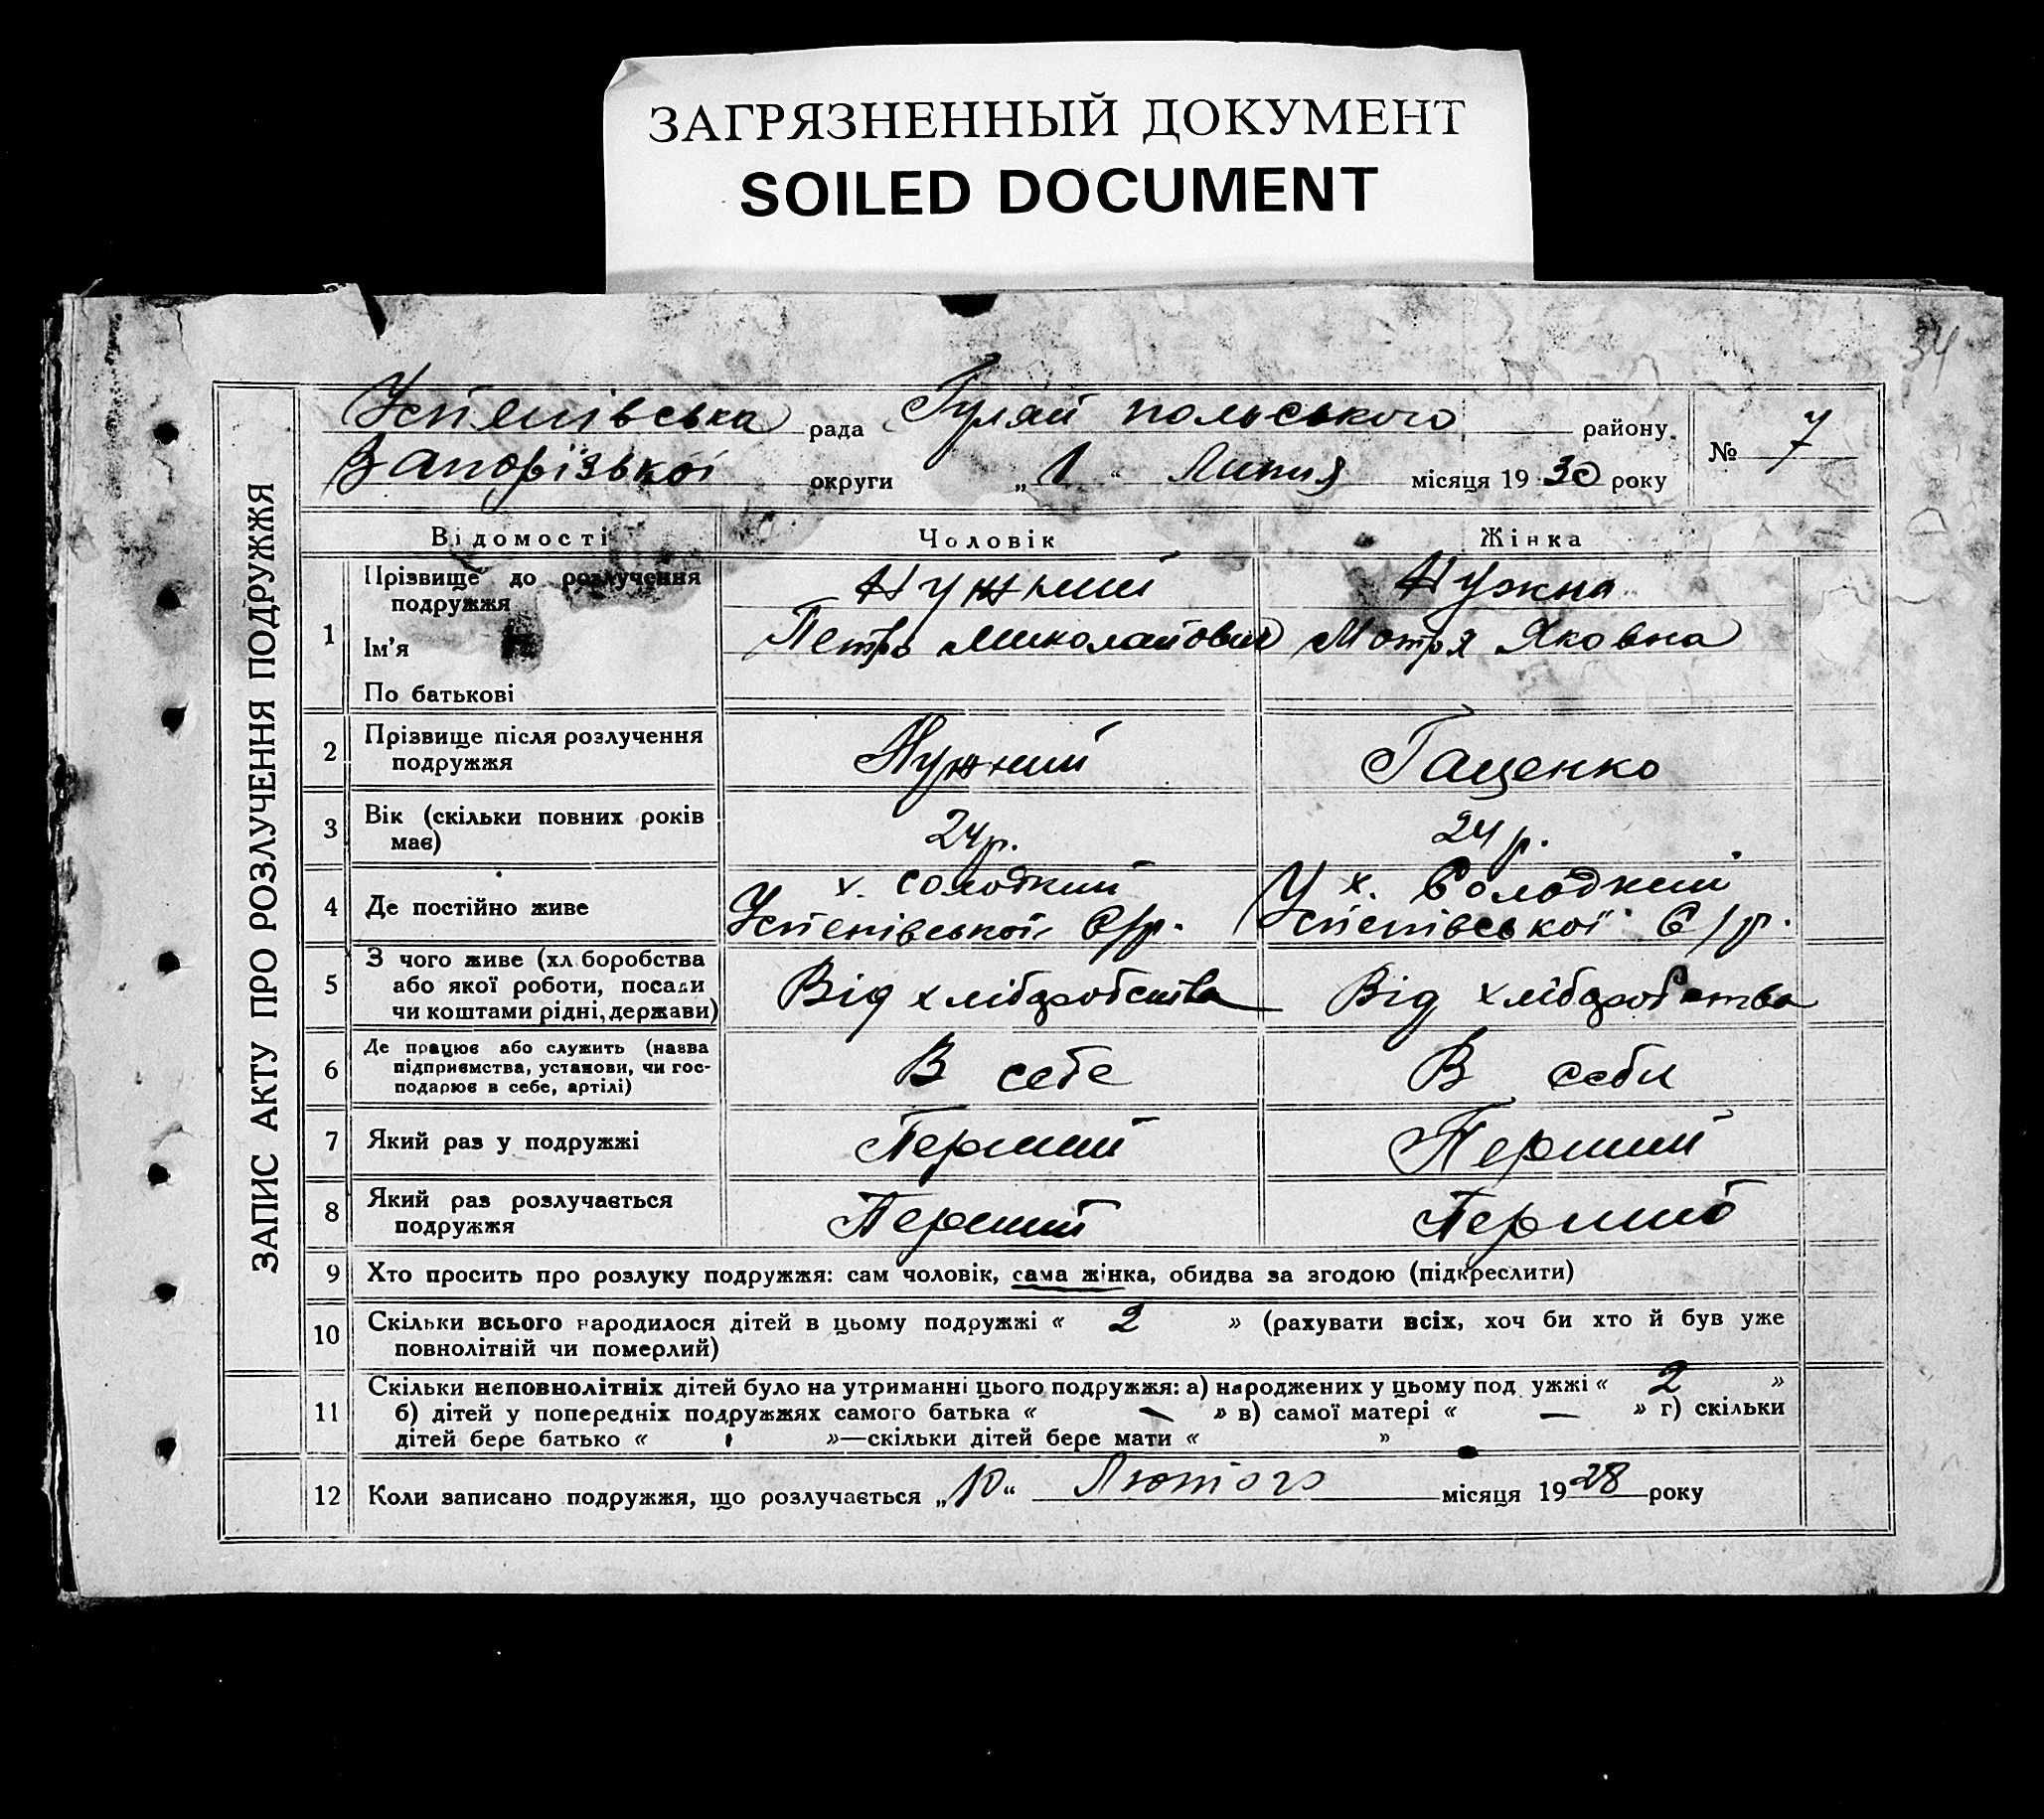 ЗАГРЯЗНЕННЫЙ ДОКУМЕНТ
SOILED DOCUMENT
34
ЗАПИС АКТУ ПРО РОЗЛУЧЕННЯ ПОДРУЖЖЯ
Успенівська рада Гуляй польського району
Запорізької округи „1“ Липня місяця 1930 року
№ 7
Відомості Чоловік Жінка
Прізвище до розлучення подружжя Нужний Нужна
1 Ім'я Петро Миколайович Мотря Яковна
По батькові
2 Прізвище після розлучення Нужний Гащенко
подружжя
3 Вік (скільки повних років 24р. 24р.
має)
4 Де постійно живе х. Солодкий Успенівської С/р. У х. Солодкий Успенівської С/р.
З чого живе (хл боробства
5 або якої роботи, посади Від хліборобства Від хліборобства
чи коштами рідні, держави)
Де працює або служить (назва
6 підприємства, установи, чи гос- В себе В себи
подарює в себе, артілі)
7 Який раз у подружжі Перший Перший
8 Який раз розлучається Перший Перший
подружжя
9 Хто просить про розлуку подружжя: сам чоловік, сама жінка, обидва за згодою (підкреслити)
10 Скільки всього народилося дітей в цьому подружжі « 2 » (рахувати всіх, хоч би хто й був уже
повнолітній чи померлий)
Скільки неповнолітніх дітей було на утриманні цього подружжя: а) народжених у цьому под ужжі « 2 »
11 б) дітей у попередніх подружжях самого батька « — » в) самої матері « — » г) скільки
дітей бере батько « »—скільки дітей бере мати « »
12 Коли записано подружжя, що розлучається „10“ Лютого місяця 1928 року